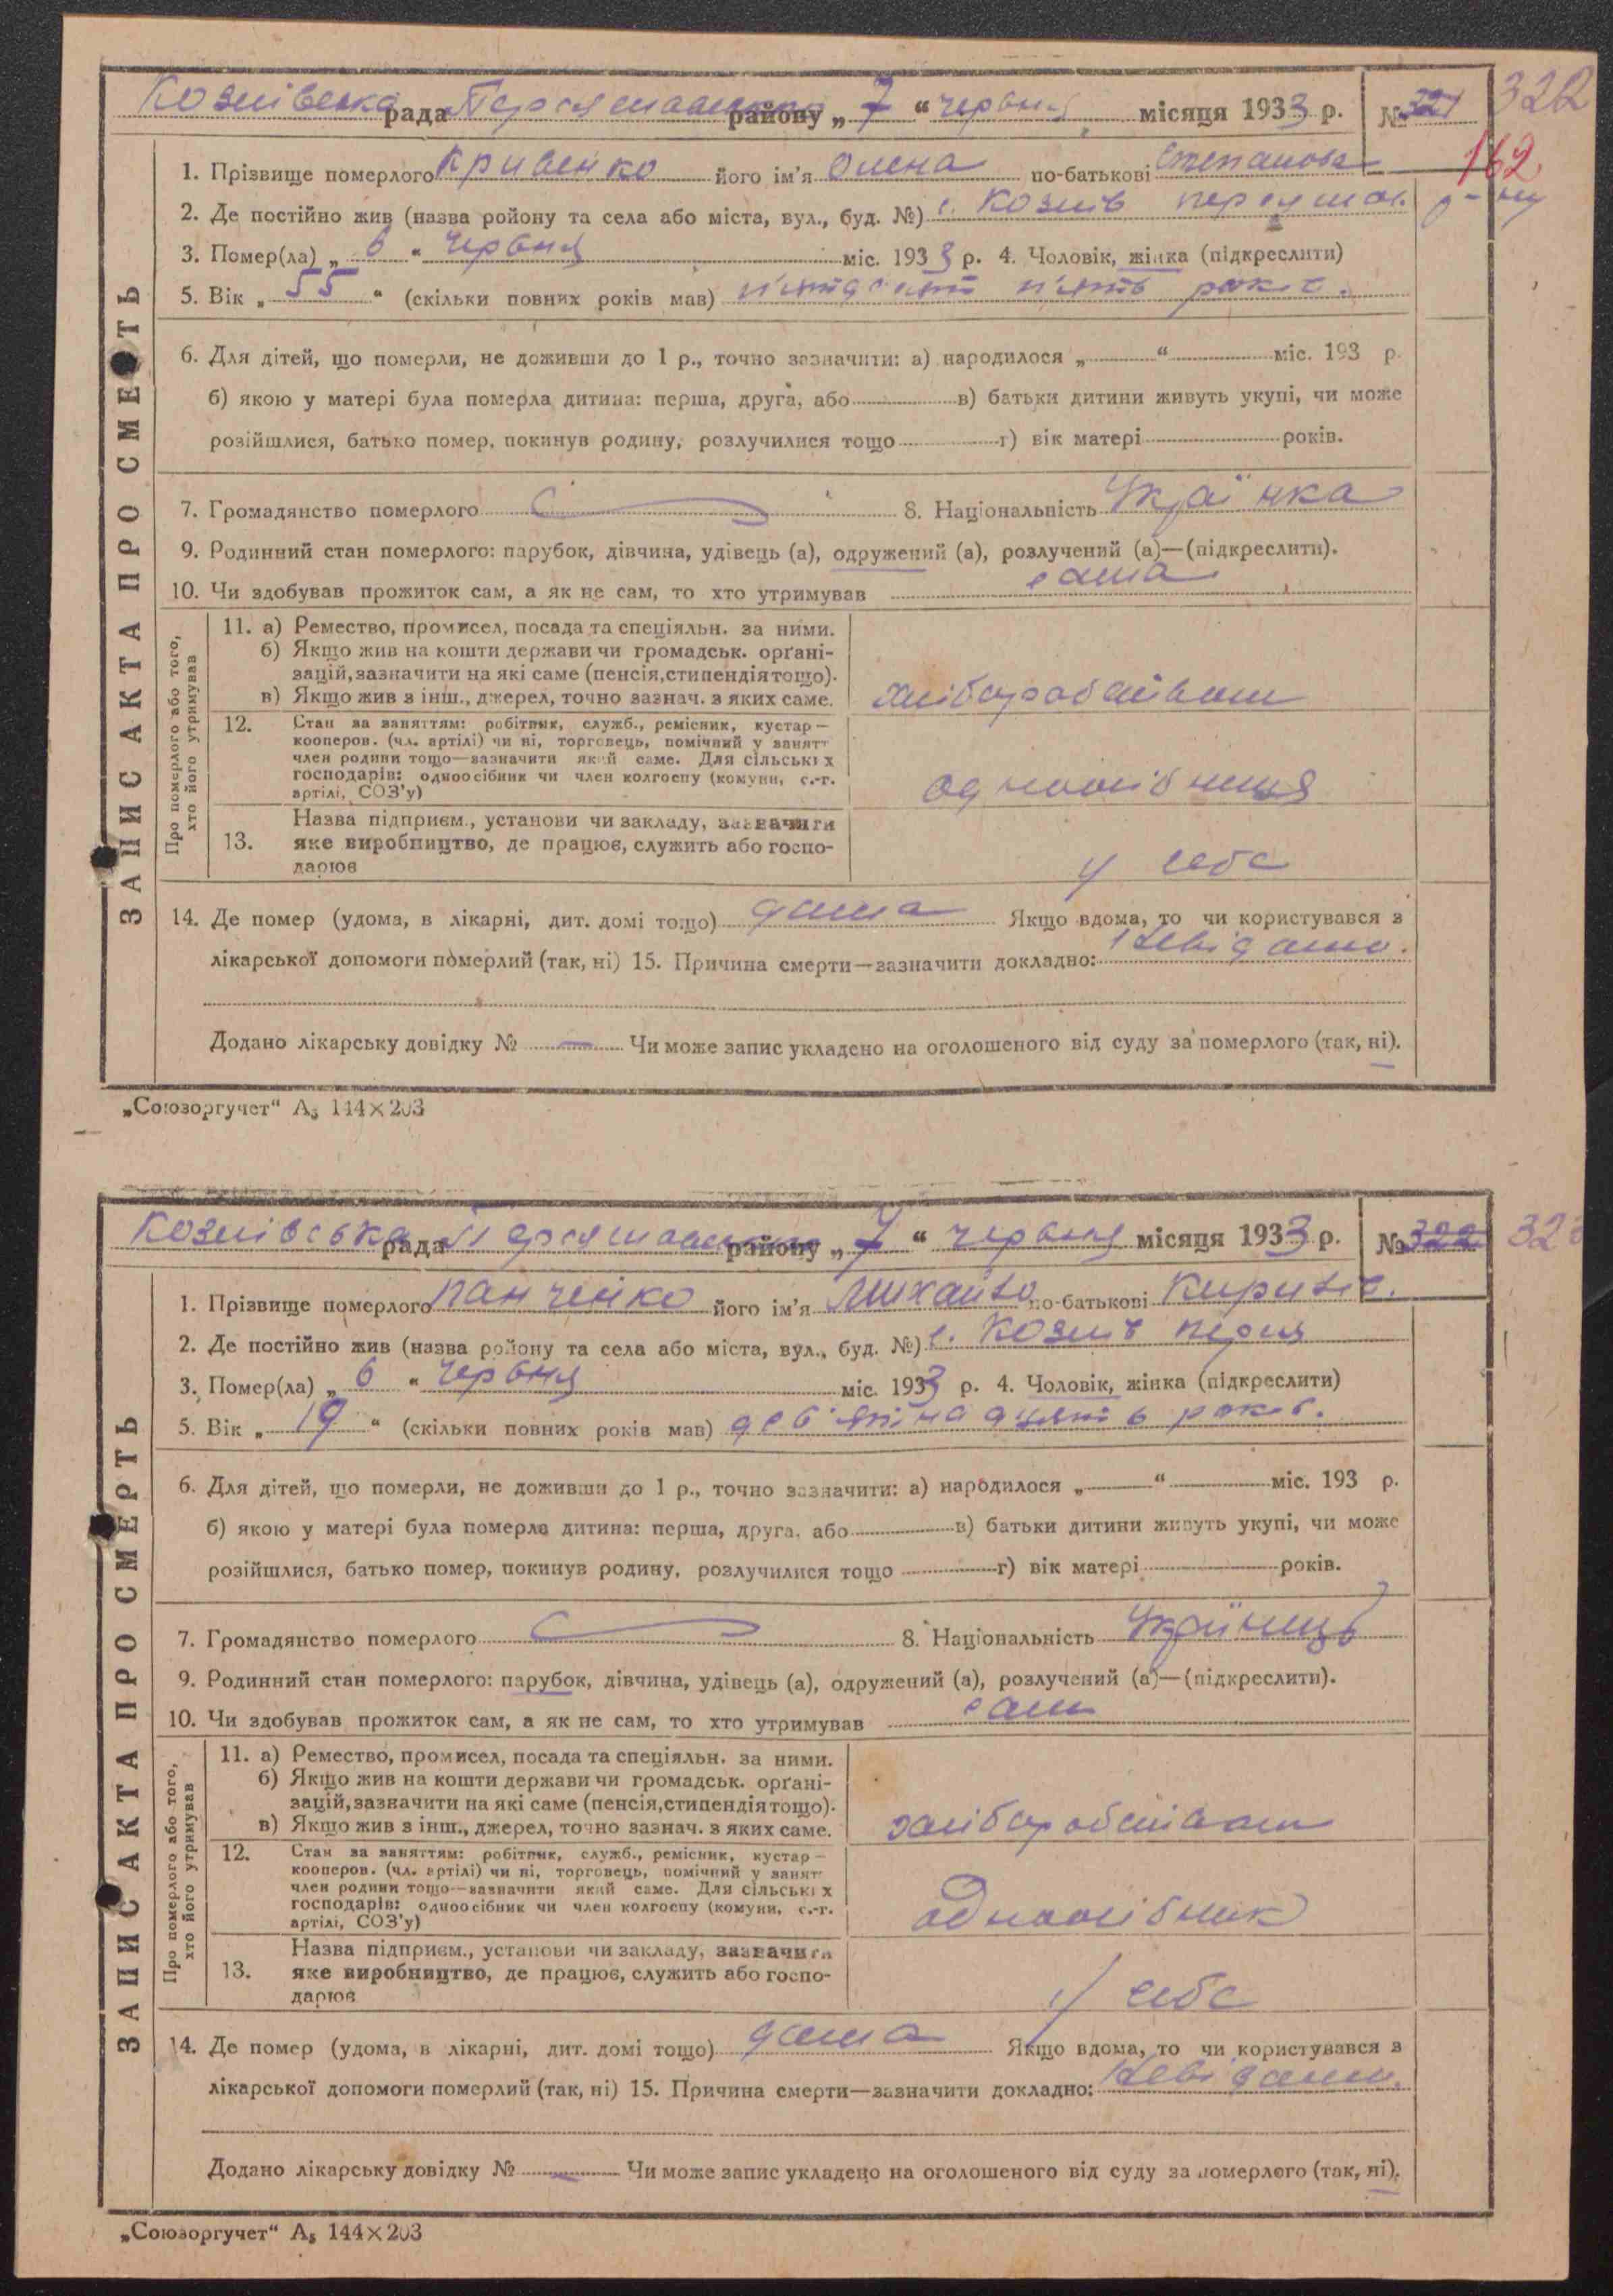 Козлівська рада Переяславського району „ 7 “ червня місяця 1933 р. № 321 322
162
1. Прізвище померлого Кривенко його ім'я Олена по-батькові Степанова
2. Де постійно жив (назва ройону та села або міста, вул., буд. №) с. Козлів переяслав. р-ну
3. Помер(ла) „ 6 “ червня міс. 1933 р. 4. Чоловік, жінка (підкреслити)
5. Вік „ 55 “ (скільки повних років мав) п'ятдесят п'ять років.
6. Для дітей, що померли, не доживши до 1 р., точно зазначити: а) народилося „ “ міс. 193 р.
б) якою у матері була померла дитина: перша, друга, або в) батьки дитини живуть укупі, чи може
розійшлися, батько помер, покинув родину, розлучилися тощо г) вік матері років.
7. Громадянство померлого 8. Національність Українка
9. Родинний стан померлого: парубок, дівчина, удівець (а), одружений (а), розлучений (а)—(підкреслити).
10. Чи здобував прожиток сам, а як не сам, то хто утримував сама
ЗАПИС АКТА ПРО СМЕРТЬ
Про померлого або того, хто його утримував
11. а) Ремество, промисел, посада та спеціяльн. за ними.
б) Якщо жив на кошти держави чи громадськ. органі-
зацій, зазначити на які саме (пенсія, стипендія тощо).
в) Якщо жив з інш., джерел, точно зазнач. з яких саме.
хліборобством
12. Стан за заняттям: робітник, служб., ремісник, кустар—
кооперов. (чл. артілі) чи ні, торговець, помічний у занятт
член родини тощо—зазначити який саме. Для сільських
господарів: одноосібник чи член колгоспу (комуни, с.-г.
артілі, СОЗ'у)
одноосібниця
13. Назва підприєм., установи чи закладу, зазначити
яке виробництво, де працює, служить або госпо-
дарює
у себе
14. Де помер (удома, в лікарні, дит. домі тощо) дома Якщо вдома, то чи користувався з
лікарської допомоги померлий (так, ні) 15. Причина смерти—зазначити докладно: Невідомо.
Додано лікарську довідку № — Чи може запис укладено на оголошеного від суду за померлого (так, ні).
„Союзоргучет“ А₅ 144×203
Козлівська рада Переяславського району „ 7 “ червня місяця 1933 р. № 322 323
1. Прізвище померлого Панченко його ім'я Михайло по-батькові Кирилів.
2. Де постійно жив (назва ройону та села або міста, вул., буд. №) с. Козлів перея
3. Помер(ла) „ 6 “ червня міс. 1933 р. 4. Чоловік, жінка (підкреслити)
5. Вік „ 19 “ (скільки повних років мав) дев'ятнадцять років.
6. Для дітей, що померли, не доживши до 1 р., точно зазначити: а) народилося „ “ міс. 193 р.
б) якою у матері була померла дитина: перша, друга, або в) батьки дитини живуть укупі, чи може
розійшлися, батько помер, покинув родину, розлучилися тощо г) вік матері років.
7. Громадянство померлого 8. Національність Українець
9. Родинний стан померлого: парубок, дівчина, удівець (а), одружений (а), розлучений (а)—(підкреслити).
10. Чи здобував прожиток сам, а як не сам, то хто утримував сам
ЗАПИС АКТА ПРО СМЕРТЬ
Про померлого або того, хто його утримував
11. а) Ремество, промисел, посада та спеціяльн. за ними.
б) Якщо жив на кошти держави чи громадськ. органі-
зацій, зазначити на які саме (пенсія, стипендія тощо).
в) Якщо жив з інш., джерел, точно зазнач. з яких саме.
хліборобством
12. Стан за заняттям: робітник, служб., ремісник, кустар—
кооперов. (чл. артілі) чи ні, торговець, помічний у занятт
член родини тощо—зазначити який саме. Для сільських
господарів: одноосібник чи член колгоспу (комуни, с.-г.
артілі, СОЗ'у)
одноосібник
13. Назва підприєм., установи чи закладу, зазначити
яке виробництво, де працює, служить або госпо-
дарює
у себе
14. Де помер (удома, в лікарні, дит. домі тощо) дома Якщо вдома, то чи користувався з
лікарської допомоги померлий (так, ні) 15. Причина смерти—зазначити докладно: Невідомо.
Додано лікарську довідку № — Чи може запис укладено на оголошеного від суду за померлого (так, ні).
„Союзоргучет“ А₅ 144×203